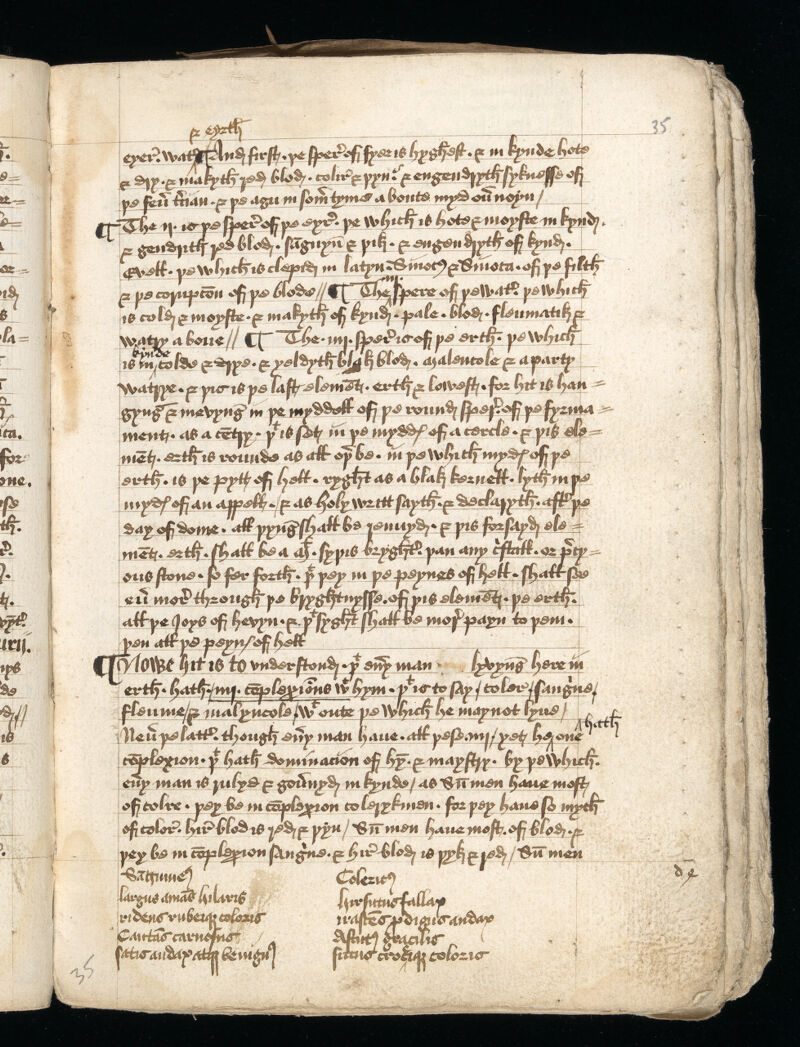 35
& eyrth
eyer. wat. And first. þe sper of fyer is hyghest. & in kynde hote
& dry. & makyth red blod. coler & þynn. & engendryth syknesse of
þe feu. & þe agu in somtyme a boute myd ou noyn /
¶ The ii. is þe sper of þe eyr. þe which is hote & moyste in kynd.
& gendrith red blod. sāguyn & þik. & engendryth of kynd.
Evell. þe which is cleped in latyn. Sinoc & Sinoca. of þe filth
& þe corupcōn of þe blode // ¶ The iii. spere of þe wat. þe which
is cold & moyste. & makyth of kynd. pale. blod. fleumatik &
watry a boue // ¶ The. iiii. sper is of þe erth. þe which
is in kynde colde & drye. & yeldyth blak blod. malencole & a party
watrye. & þis is þe last elemēt. erth & lowest. for hit is han =
gyng & mevyng in þe myddell of þe round sper. of þe fyrma =
ment. as a cētry. þt is set in þe mydd of a cercle. & þis ele =
mēt. erth is rounde as all oþ be. in þe which myd of þe
erth. is þe pytt of hell. ryght as a blak kornell. lyth in þe
myd of an appell. / & as holy writt sayth. & declaryth. aft þe
day of dome. all þyng shall be renuyd. & þis forsayd ele =
mēt. erth. shall be a M. sypis bryght. þan any cstall. or pcy =
ous stone. so fer forth. þt þey in þe peynes of hell. shall see
eu mor through þe bryghtnysse. of þis elemēt. þe erth.
all þe Joys of hevyn. & þt syght shall be mor payn to þem.
þen all þe peyn of hell
¶ Nowe hit is to vnderstond. þt euy man lyvyng here in
erth. hath. iiii. cōplexiōns wt hym. þt is to say / coler / sangne /
fleume / & malyncole / wt oute þe which he may not lyue /
Neu þe latt. though euy man haue. all þese. iiii / yet he hath one
cōplexion. þt hath domination of hy. & maystry. by þe which.
euy man is rulyd & gouned in kynde / as Sū men haue most
of colre. þey be in cōplexion colerykmen. for þey haue so mych
of coler. hir blod is red & þyn / Sū men haue most. of blod. &
þey be in cōplexion sangne. & hir blod is þyk & red / Sū men
Sāguineus
largus amās hilaris
ridens rubeique coloris
Cantās carnosus
satis audax atque benignus
Colericus
hirsutus fallax
irascēs prodigus audax
Astutus gracilis
siccus croceique coloris
35